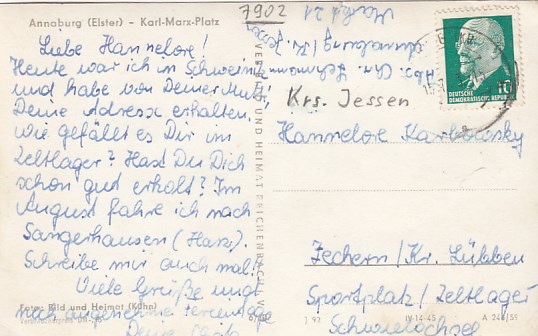 Annaburg (Elster) – Karl-Marx-Platz
Liebe Hannelore!
Heute war ich in Schweinitz
und habe von Deiner Mutti
Deine Adresse erhalten.
Wie gefällt es Dir im
Zeltlager? Hast Du Dich
schon gut erholt? Im
August fahre ich nach
Sangerhausen (Harz).
Schreibe mir auch mal!
Viele Grüße und
noch angenehme
Deine
Foto: Bild und Heimat (Kühn)
7902
Abs. Chr. Lehmann
Annaburg / Kr. Jessen
Markt 21
Krs. Jessen
VERLAG BILD UND HEIMAT REICHENBACH I. V.
DEUTSCHE
DEMOKRATISCHE REPUBLIK
10
Hannelore
Zechern / Kr. Lübben
Sportplatz / Zeltlager
Schwielochsee
IV-14-45
A 24/59